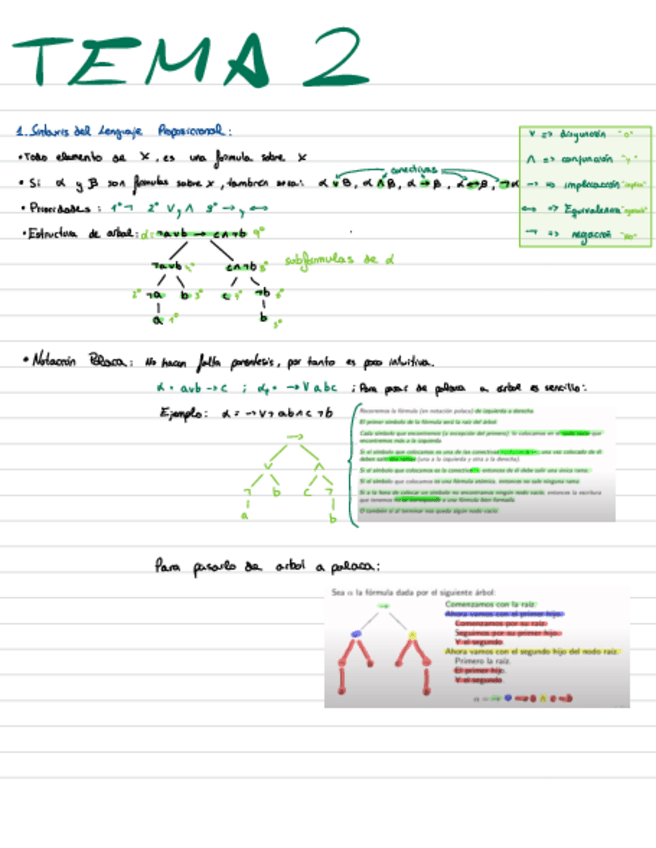 TEMA 2
1. Sintaxis del Lenguaje Proposicional:
v => disyunción "o"
∧ => conjunción "y"
→ => implicación
↔ => Equivalencia
¬ => negación "no"
• Todo elemento de X, es una fórmula sobre X
conectivas
• Si α y β son fórmulas sobre x, también son: α v β, α ∧ β, α → β, α ↔ β, ¬α
• Prioridades: 1º ¬ 2º V y ∧ 3º → y ↔
• Estructura de arbol: α= ¬a v b → c ∧ ¬b 9º
¬a v b c ∧ ¬b subfórmulas de α
2º ¬a b 3º c ¬b
a 1º b
• Notación Polaca: No hacen falta parentesis, por tanto es poco intuitiva.
α = avb → c ; → V abc ; Para pasar de polaca a arbol es sencillo:
Ejemplo: α = → v ¬ a b ∧ c ¬ b
→
v ∧
¬ b c ¬
a b
Recorremos la fórmula (en notación polaca) de izquierda a derecha
El primer símbolo de la fórmula será la raíz del árbol
Cada símbolo que encontremos (a excepción del primero), lo colocamos en el nodo vacío que
encontremos más a la izquierda
Si el símbolo que colocamos es una de las conectivas una vez colocado de él
deben salir dos ramas (una a la izquierda y otra a la derecha)
Si el símbolo que colocamos es la conectiva ¬, entonces de él debe salir una única rama
Si el símbolo que colocamos es una fórmula atómica, entonces no sale ninguna rama
Si a la hora de colocar un símbolo no encontramos ningún nodo vacío, entonces la escritura
que tenemos no se corresponde a una fórmula bien formada
O también si al terminar nos queda algún nodo vacío
Para pasarlo de arbol a polaca:
Sea α la fórmula dada por el siguiente árbol:
Comenzamos con la raíz.
Ahora vamos con el primer hijo.
Comenzamos por su raíz.
Seguimos por su primer hijo.
Y el segundo
Ahora vamos con el segundo hijo del nodo raíz.
Primero la raíz.
El primer hijo.
Y el segundo